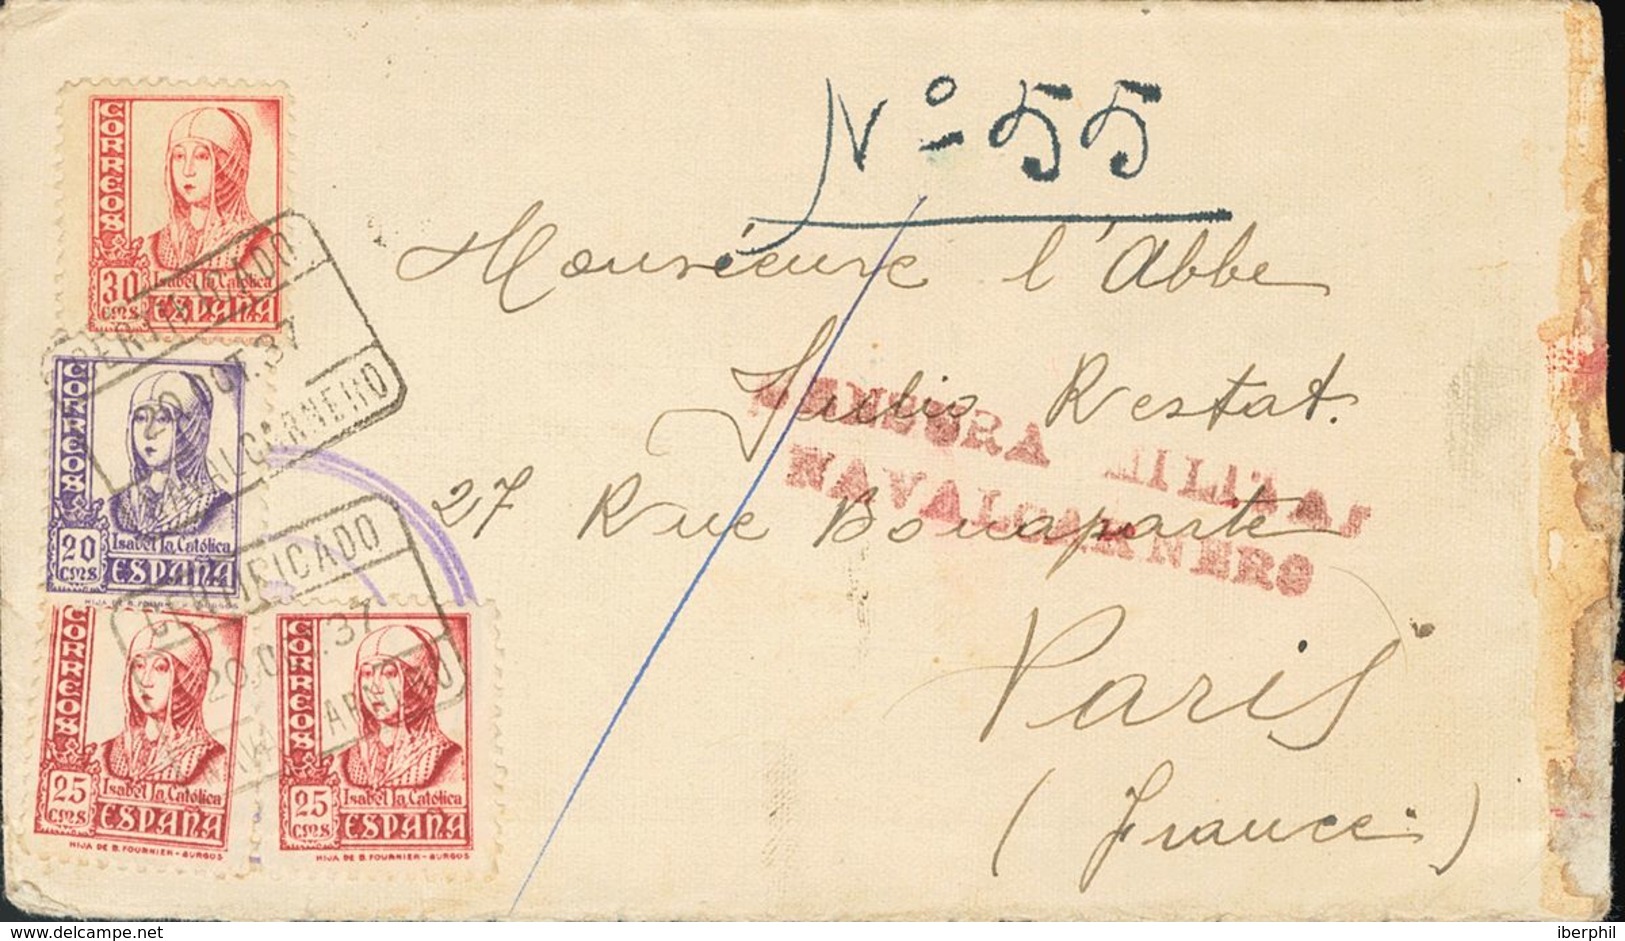 Nº 55
CORREOS
30
CMS
Isabel la Católica
ESPAÑA
CERTIFICADO
20 OCT.37
NAVALCARNERO
Monsieur l'Abbe
Julio Restat.
27 Rue Bonaparte
Paris
(France)
CENSURA
MILITAR
NAVALCARNERO
CORREOS
20
CMS
Isabel la Católica
ESPAÑA
HIJA DE B. FOURNIER - BURGOS
CERTIFICADO
20.OCT.37
NAVALCARNERO
CORREOS
25
CMS
Isabel la Católica
ESPAÑA
HIJA DE B. FOURNIER - BURGOS
CORREOS
25
CMS
Isabel la Católica
ESPAÑA
HIJA DE B. FOURNIER - BURGOS
delcampe.net
iberphil